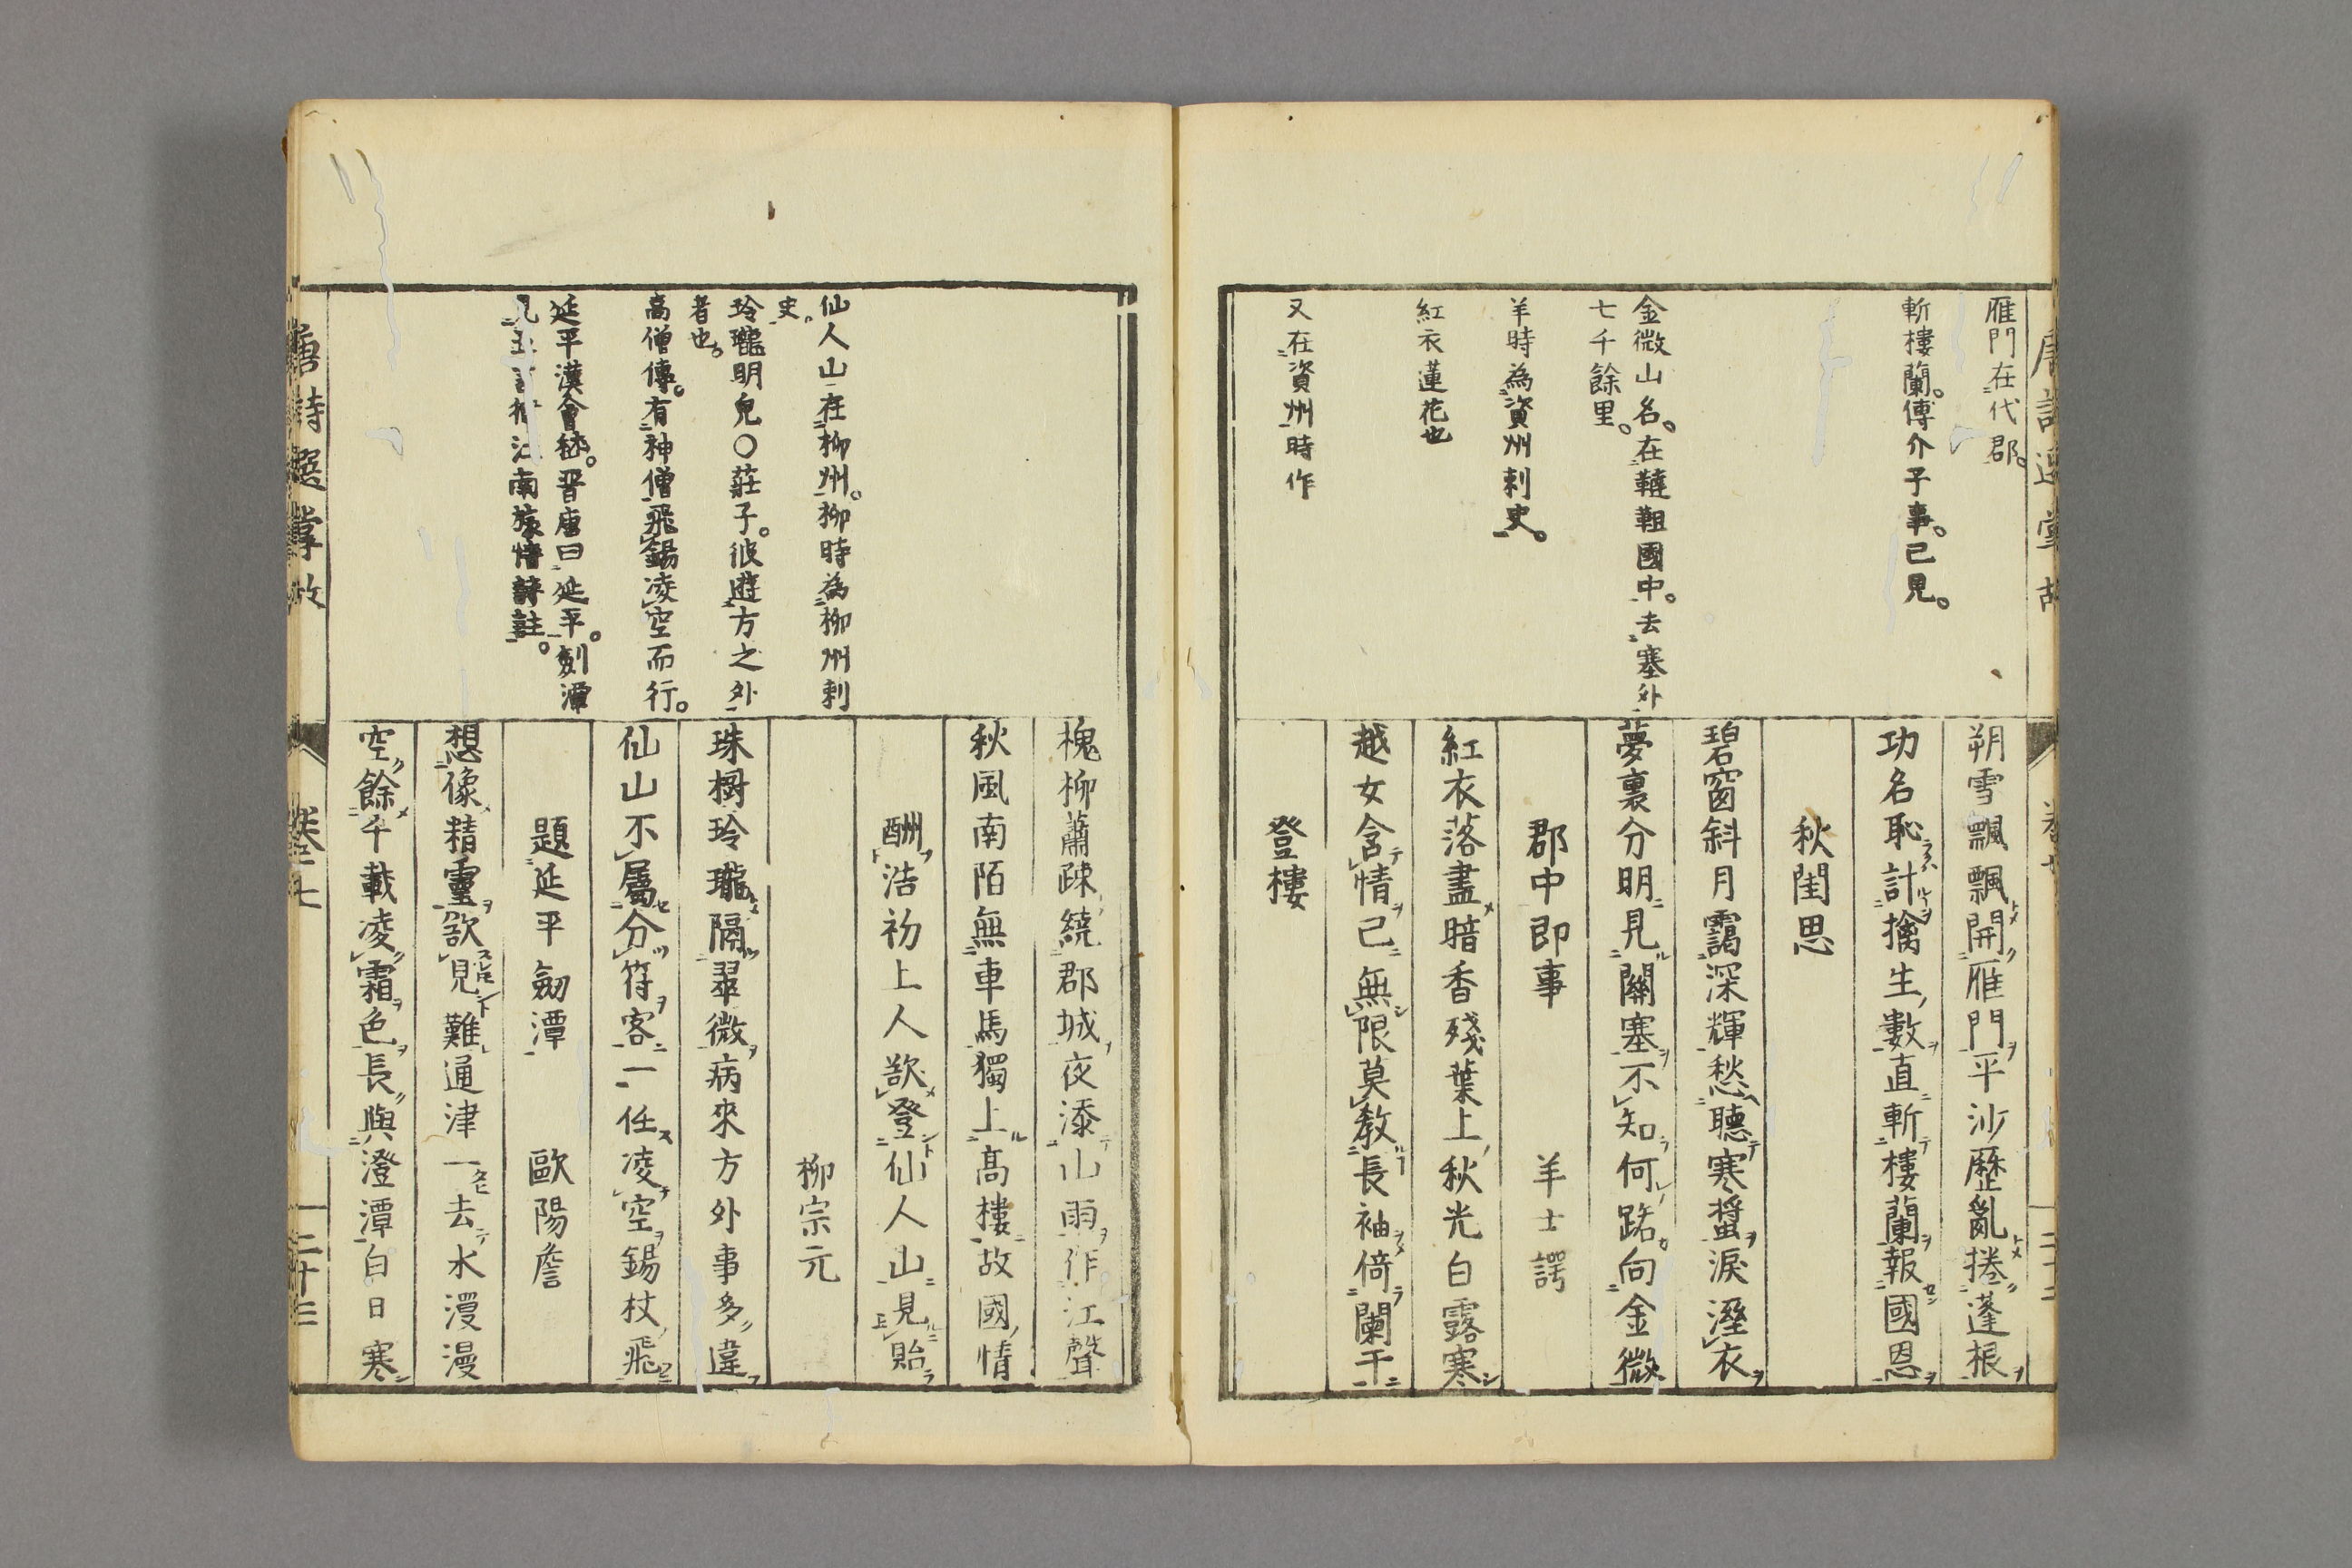 雁門在代郡。
斬樓蘭。傅介子事。已見。
金微山名。在韃靼國中。去塞外
七千餘里。
羊時為資州刺史。
紅衣蓮花也
又在資州時作
朔雪飄飄開雁門平沙歷亂捲蓬根
功名恥計擒生數直斬樓蘭報國恩
秋閨思
碧窗斜月靄深輝愁聽寒螿淚溼衣
夢裏分明見關塞不知何路向金微
郡中即事 羊士諤
紅衣落盡暗香殘葉上秋光白露寒
越女含情已無限莫教長袖倚闌干
登樓
仙人山在柳州。柳時為柳州刺
史
玲瓏明皃〇莊子。彼遊方之外
者也。
高僧傳。有神僧飛錫凌空而行。
延平漢會稽。晋唐曰延平。劍潭
江南旅情詩註。
槐柳蕭疎繞郡城夜添山雨作江聲
秋風南陌無車馬獨上高樓故國情
酬浩初上人欲登仙人山見貽
柳宗元
珠樹玲瓏隔翠微病來方外事多違
仙山不屬分符客一任凌空錫杖飛
題延平劒潭 歐陽詹
想像精靈欲見難通津一去水漫漫
空餘千載凌霜色長與澄潭白日寒
唐詩選掌故 卷七 二十三